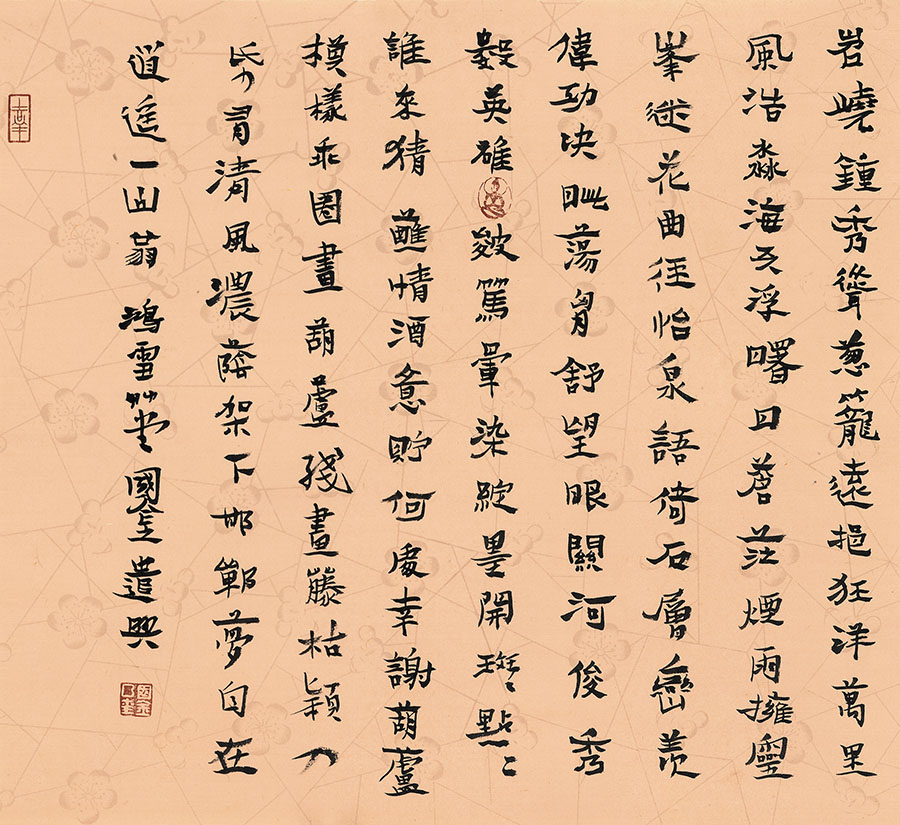 岧嶢鍾秀聳蔥籠遠挹狂洋萬里
風浩淼海天浮曙日蒼茫煙雨擁靈
峯迷花曲徑怡泉語倚石層巒羨
偉功決眦蕩胷舒望眼關河俊秀
毅英雄皴篤暈染綻墨開斑〻點〻
誰來猜蘸情酒意貯何處幸謝葫蘆
模樣乖圈畫葫蘆殘畫藤枯穎入
帋有清風濃蔭架下邯鄲夢自在
逍遙一翁鴻雪艸堂國遣興